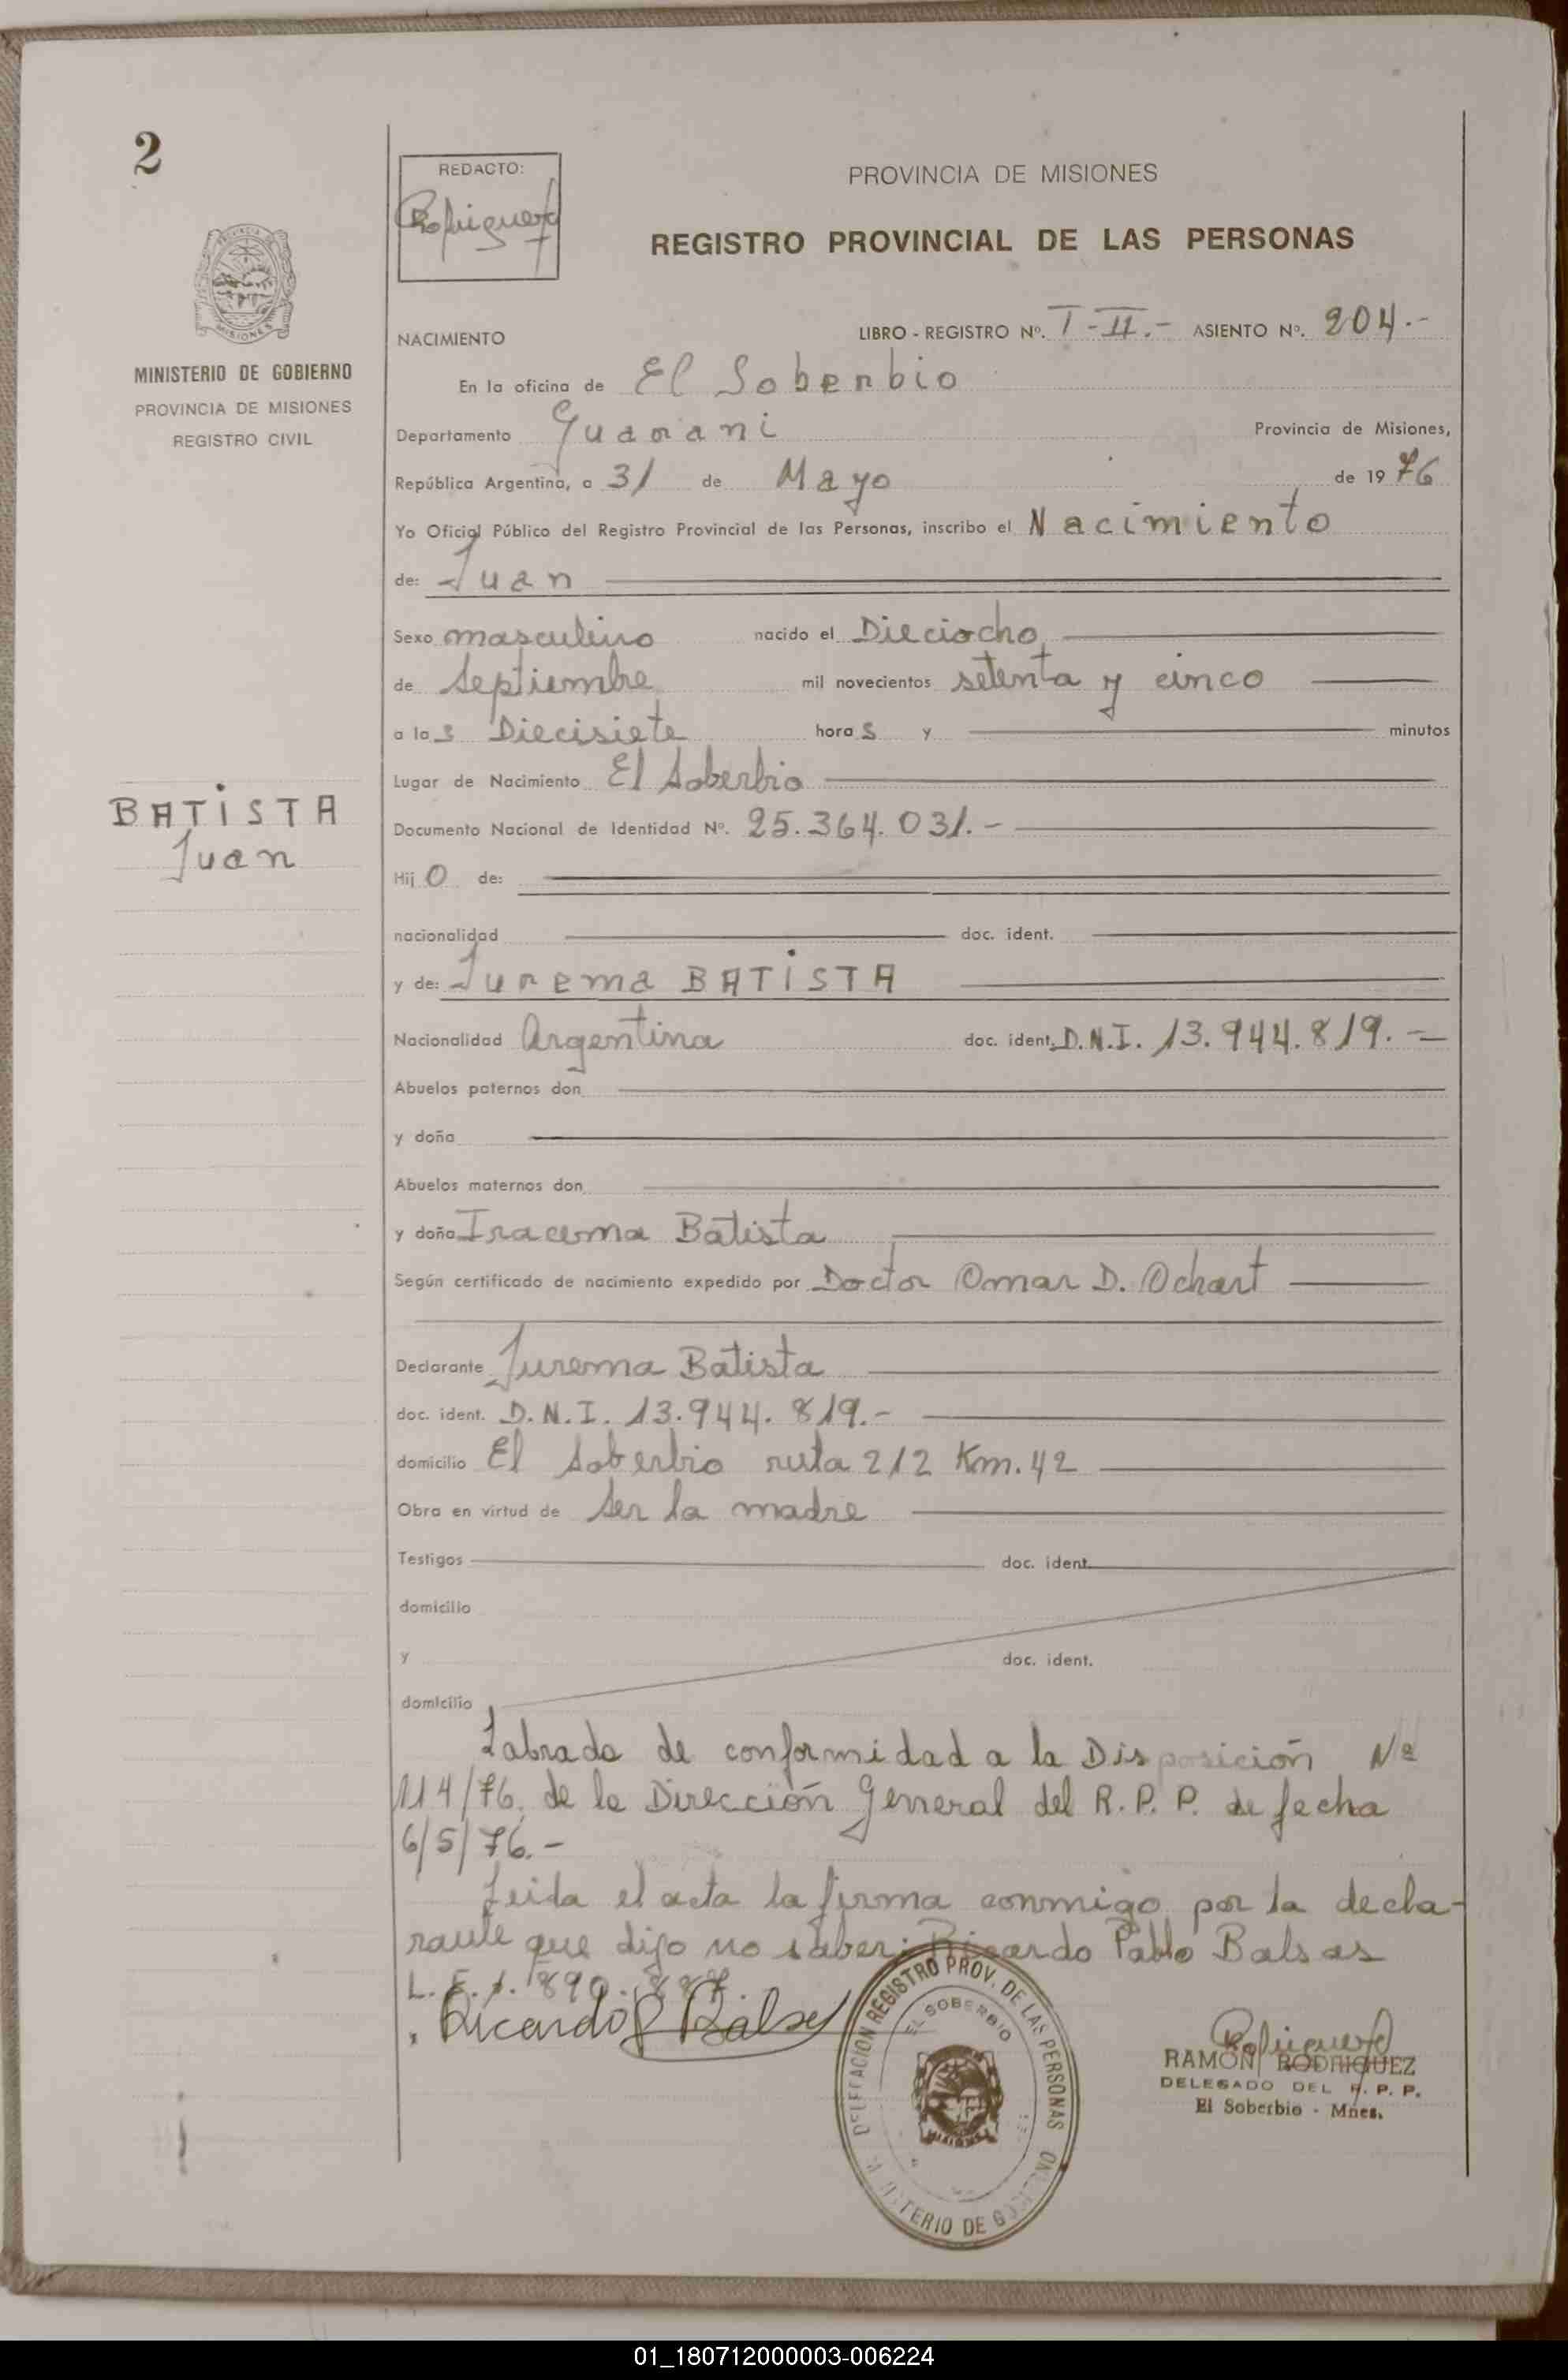 2
REDACTO:
PROVINCIA DE MISIONES
REGISTRO PROVINCIAL DE LAS PERSONAS
MINISTERIO DE GOBIERNO
PROVINCIA DE MISIONES
REGISTRO CIVIL
NACIMIENTO LIBRO - REGISTRO Nº. I - II.- ASIENTO Nº. 204.-
En la oficina de El Soberbio
Departamento Guarani Provincia de Misiones,
República Argentina, a 31 de Mayo de 1976
Yo Oficial Público del Registro Provincial de las Personas, inscribo el Nacimiento
de: Juan
Sexo masculino nacido el Dieciocho
de Septiembre mil novecientos setenta y cinco
a las Diecisiete horas y minutos
Lugar de Nacimiento El Soberbio
BATISTA
Juan
Documento Nacional de Identidad Nº. 25.364.031.-
Hijo de:
nacionalidad doc. ident.
y de: Jurema BATISTA
Nacionalidad Argentina doc. ident. D.N.I. 13.944.819.-
Abuelos paternos don
y doña
Abuelos maternos don
y doña Iracema Batista
Según certificado de nacimiento expedido por Doctor Omar D. Ochart
Declarante Jurema Batista
doc. ident. D.N.I. 13.944.819.-
domicilio El Soberbio ruta 212 Km. 42
Obra en virtud de ser la madre
Testigos doc. ident.
domicilio
y doc. ident.
domicilio
Labrada de conformidad a la Disposición Nº
114/76. de la Dirección General del R.P.P. de fecha
6/5/76.-
Leida el acta la firma conmigo por la decla-
rante que dijo no saber: Ricardo Pablo Balsas
L.E. 1.890.887.
Ricardo P Balsas
DELEGACION REGISTRO PROV. DE LAS PERSONAS
EL SOBERBIO
MISIONES
TERIO DE
RAMON RODRIGUEZ
DELEGADO DEL R. P. P.
El Soberbio - Mnes.
01_180712000003-006224